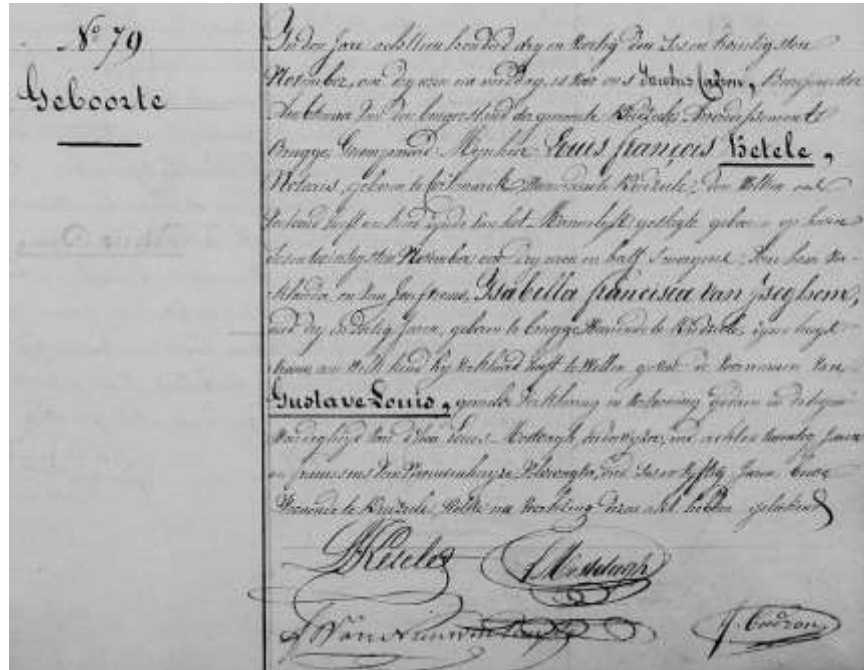 N° 79
Geboorte
In den jare achttien honderd dry en veertig den sesen twintigsten
November, om dry uren na middag, is voor ons Jacobus Coudron, Burgemeester
Ambtenaar van den burgerstand der gemeente Arrondissement
Brugge Gecompareerd Mynheer Louis françois Ketele,
Notaris, geboren te woonende te den welken ons
verklaard heeft een kind zynde van het Mannelyk geslagte geboren op heden
sesen twintigsten November om dry uren en half s'morgens, van hem ver-
klaarder en van Joufvrouw Ysabella francisca van Yseghem,
oud dry en dertig Jaren, geboren te brugge woonende te zyne huys-
vrouw aan welk kind hy verklaard heeft te willen geven de voornamen van
Gustave Louis, gemelde verklaring en vertooning gedaen in de tegen-
woordigheyd van d'heer Louis onderwyzer, oud achten twintig Jaren
en franciscus oud sesen vyftig Jaren beyde
woonende te welke na voorlezing dezer akt hebben geteekend
LKetele
J. Coudron